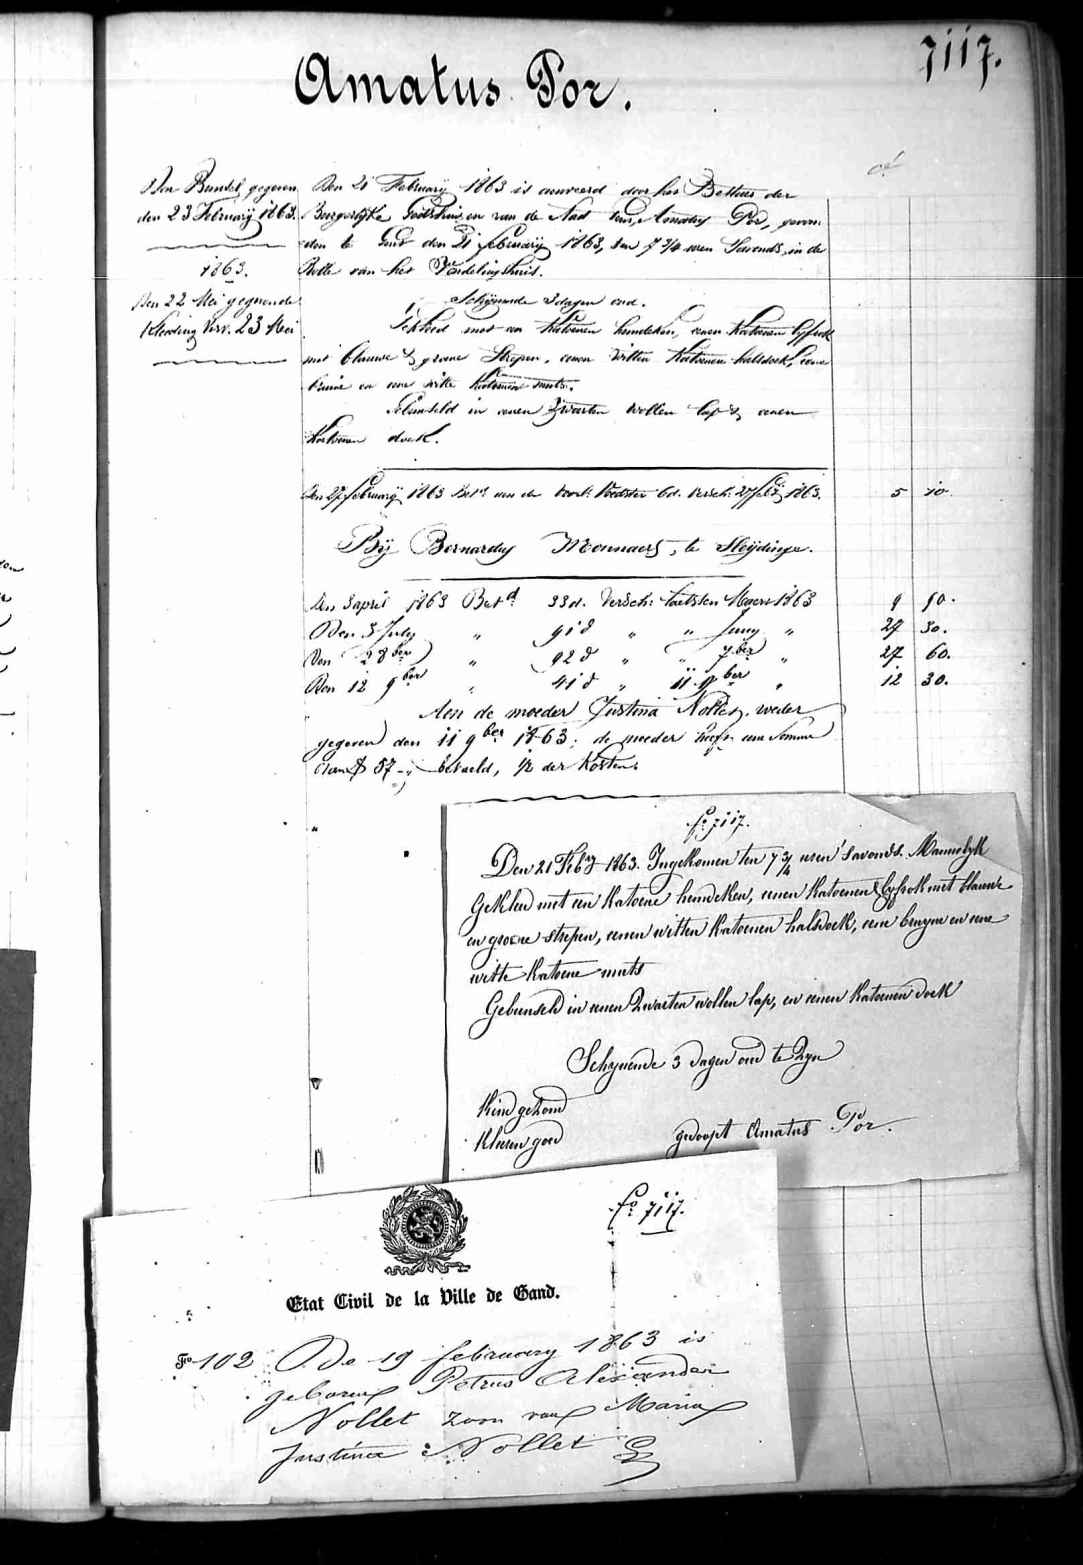 7117.
Amatus Por.
Den Bundel gegeven
den 23 February 1863.
1863.
Den 22 Mei gegevende
kleeding Verv. 23 Mei
Den 21 February 1863 is aanveerd door het Bestuur der
Burgerlyke Godshuizen van de Stad Gent, Amatus Por, gevon-
den te Gent den 21 february 1863, ten 7 3/4 uren 's avonds, in de
Rolle van het Verdelingshuis.
Schynende 3 dagen oud.
Gekleed met een Katoenen hemdeken, eenen Katoenen lyfrok
met blauwe & groene Strepen, eenen Witten Katoenen halsdoek, eene
bruine en eene witte Katoenen muts.
Gebunseld in eenen Zwarten Wollen lap & eenen
Katoenen doek.
Den 27 february 1863 Bet.d aen de Voorl. Voedster 6d. Versch. 27 feb.y 1863. 5 10
By Bernardus Monnaers, te Sleydinge.
Den 3 april 1863 Bet.d 33 d. Versch: laetsten Maert 1863 9 90.
Den 3 July " 91 d " " Juny " 27 30.
Den 2 8ber " 92 d " " 7ber " 27 60.
Den 12 9ber " 41 d " 11 9ber " 12 30.
Aen de moeder Justina Nollet, weder
gegeven den 11 9ber 1863; de moeder heeft eene Somme
van f 57 -,, betaeld, 1/2 der Kosten.
fo. 7117.
Den 21 Feby 1863. Ingekomen ten 7 3/4 uren 'savonds. Mannelyk
Gekleed met een Katoene hemdeken, eenen Katoenen lyfrok met blauwe
en groene strepen, eenen witten Katoenen halsdoek, eene bruyne en eene
witte Katoene muts
Gebunseld in eenen Zwarten wollen lap, en eenen Katoenen doek
Schynende 3 dagen oud te Zyn
Kind gezond
Kleeren goed gedoopt Amatus Por.
fo. 7117.
Etat Civil de la Ville de Gand.
Fo 102 De 19 february 1863 is
geboren Petrus Alexander
Nollet zoon van Maria
Justina Nollet